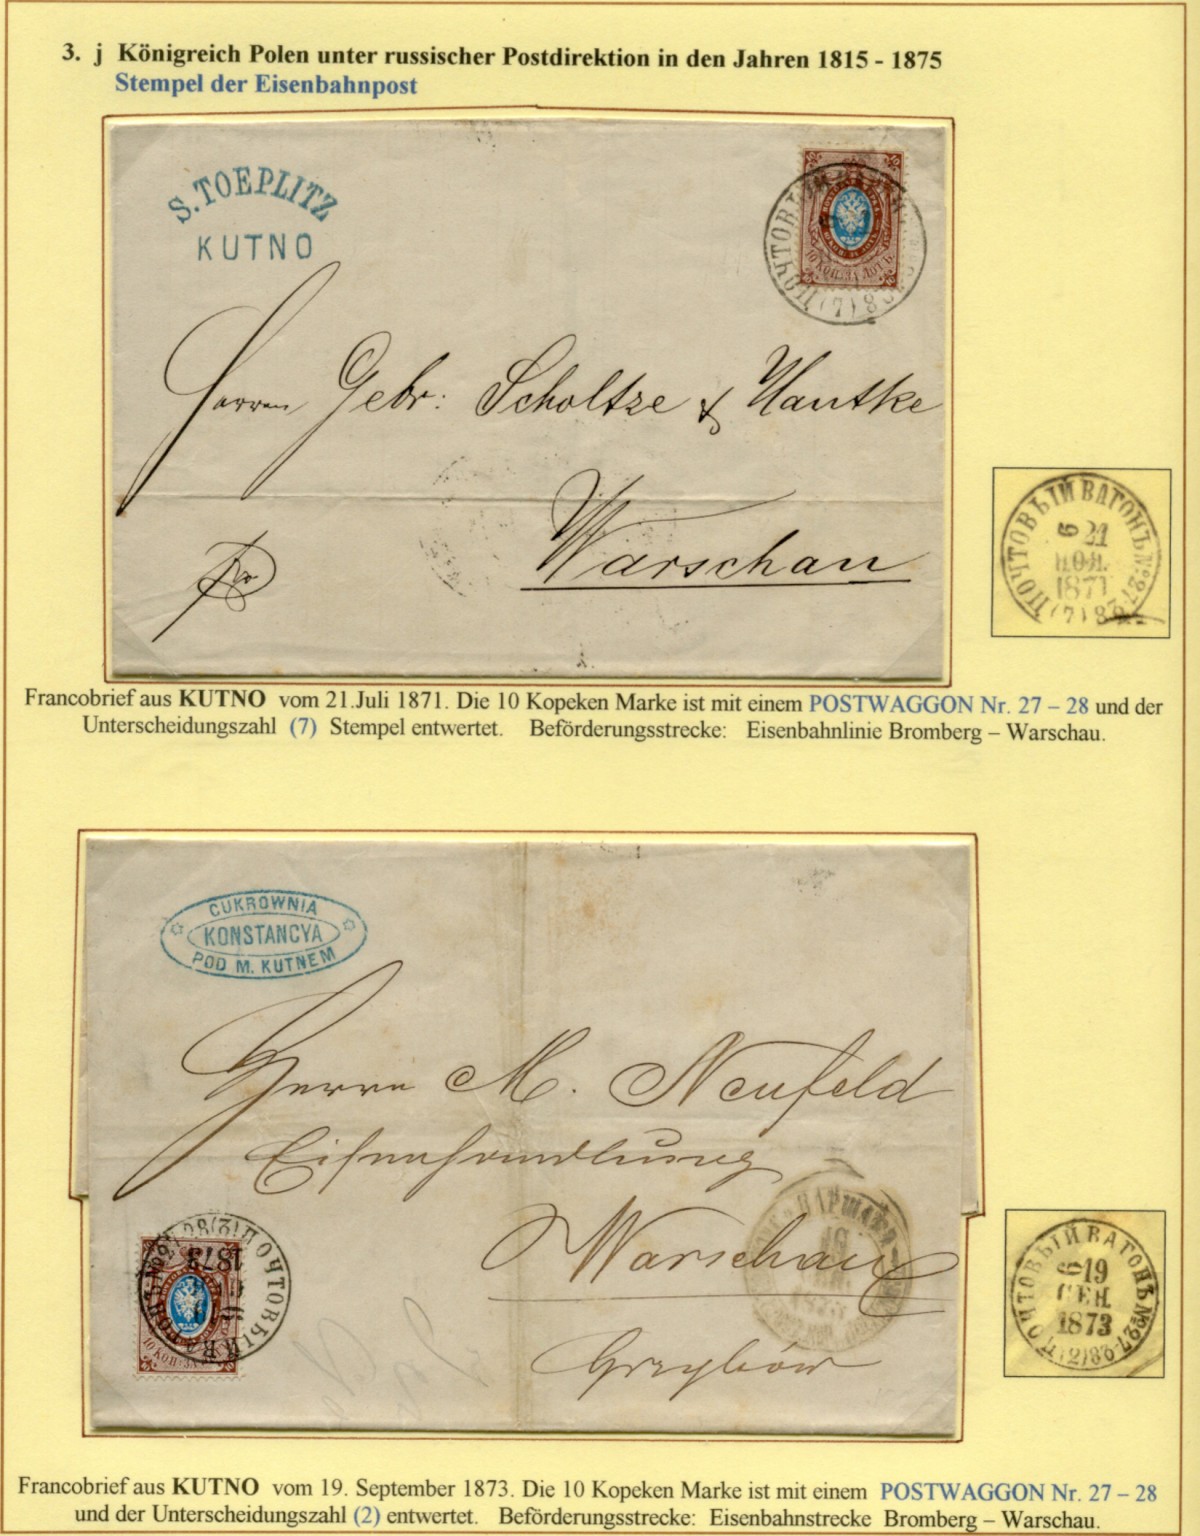 3. j Königreich Polen unter russischer Postdirektion in den Jahren 1815 - 1875
Stempel der Eisenbahnpost
S. TOEPLITZ
KUTNO
10 КОП. ЗА ЛОТЪ.
ПОЧТОВЫЙ
(7) 8
Herren Gebr: Scholtze & Hantke
Warschau
ПОЧТОВЫЙ ВАГОНЪ № 27-28 (7)
6 21
1871
Francobrief aus KUTNO vom 21.Juli 1871. Die 10 Kopeken Marke ist mit einem POSTWAGGON Nr. 27 – 28 und der
Unterscheidungszahl (7) Stempel entwertet. Beförderungsstrecke: Eisenbahnlinie Bromberg – Warschau.
CUKROWNIA
KONSTANCYA
POD M. KUTNEM
Herrn M. Neufeld
Eisenhandlung
Warschau
Grzybów
ПОЧТОВЫЙ ВАГОНЪ № 27 28 (2)
1873
10 КОП. ЗА
ВАРШАВА
ПОЧТОВЫЙ ВАГОНЪ № 27-28 (2)
6 19
СЕН.
1873
Francobrief aus KUTNO vom 19. September 1873. Die 10 Kopeken Marke ist mit einem POSTWAGGON Nr. 27 – 28
und der Unterscheidungszahl (2) entwertet. Beförderungsstrecke: Eisenbahnstrecke Bromberg – Warschau.